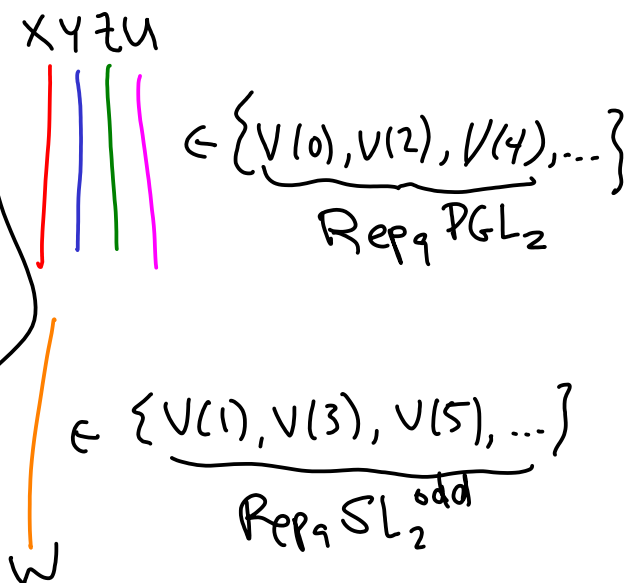 X Y Z U
∈ {V(0), V(2), V(4), ...}
Rep_q PGL_2
∈ {V(1), V(3), V(5), ...}
Rep_q SL_2^odd
W